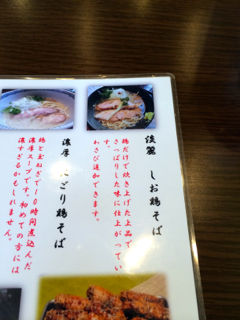 淡麗 しお鶏そば
鶏だけで炊き上げた上品で
さっぱりした味に仕上がっていま
す。
わさび追加できます。
濃厚 にごり鶏そば
鶏と玉ねぎで10時間煮込んだ
濃厚スープです。初めての方には
濃すぎるかもしれません。